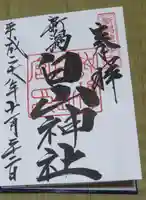 奉拝
新潟
白山神社
平成二八年十一月十二日